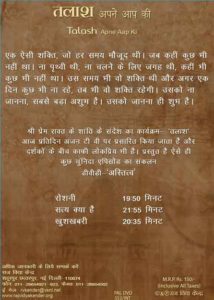 तलाश अपने आप की
Talash Apne Aap Ki
एक ऐसी शक्ति, जो हर समय मौजूद थी। जब कहीं कुछ भी
नहीं था। ना पृथ्वी थी, ना चलने के लिए जगह थी, कहीं भी
कुछ भी नहीं था। उस समय भी वो शक्ति थी और अगर एक
दिन कुछ भी ना रहे, तब भी वो शक्ति रहेगी। उसको ना
जानना, सबसे बड़ा अशुभ है। उसको जानना ही शुभ है।
श्री प्रेम रावत के शांति के संदेश का कार्यक्रम- 'तलाश'
आज प्रतिदिन अंजन टी वी पर प्रसारित किया जाता है और
दर्शकों के बीच काफी लोकप्रिय भी है। प्रस्तुत है ऐसे ही
कुछ चुनिंदा एपिसोड का संकलन
डीवीडी-'अस्तित्व'
रोशनी 19:50 मिनट
सत्य क्या है 21:55 मिनट
खुशखबरी 20:35 मिनट
अधिक जानकारी के लिये सम्पर्क करें
राज विद्या केन्द्र
M.R.P. Rs. 150/-
(Inclusive All Taxes)
PAL DVD
www.rajvidyakender.org